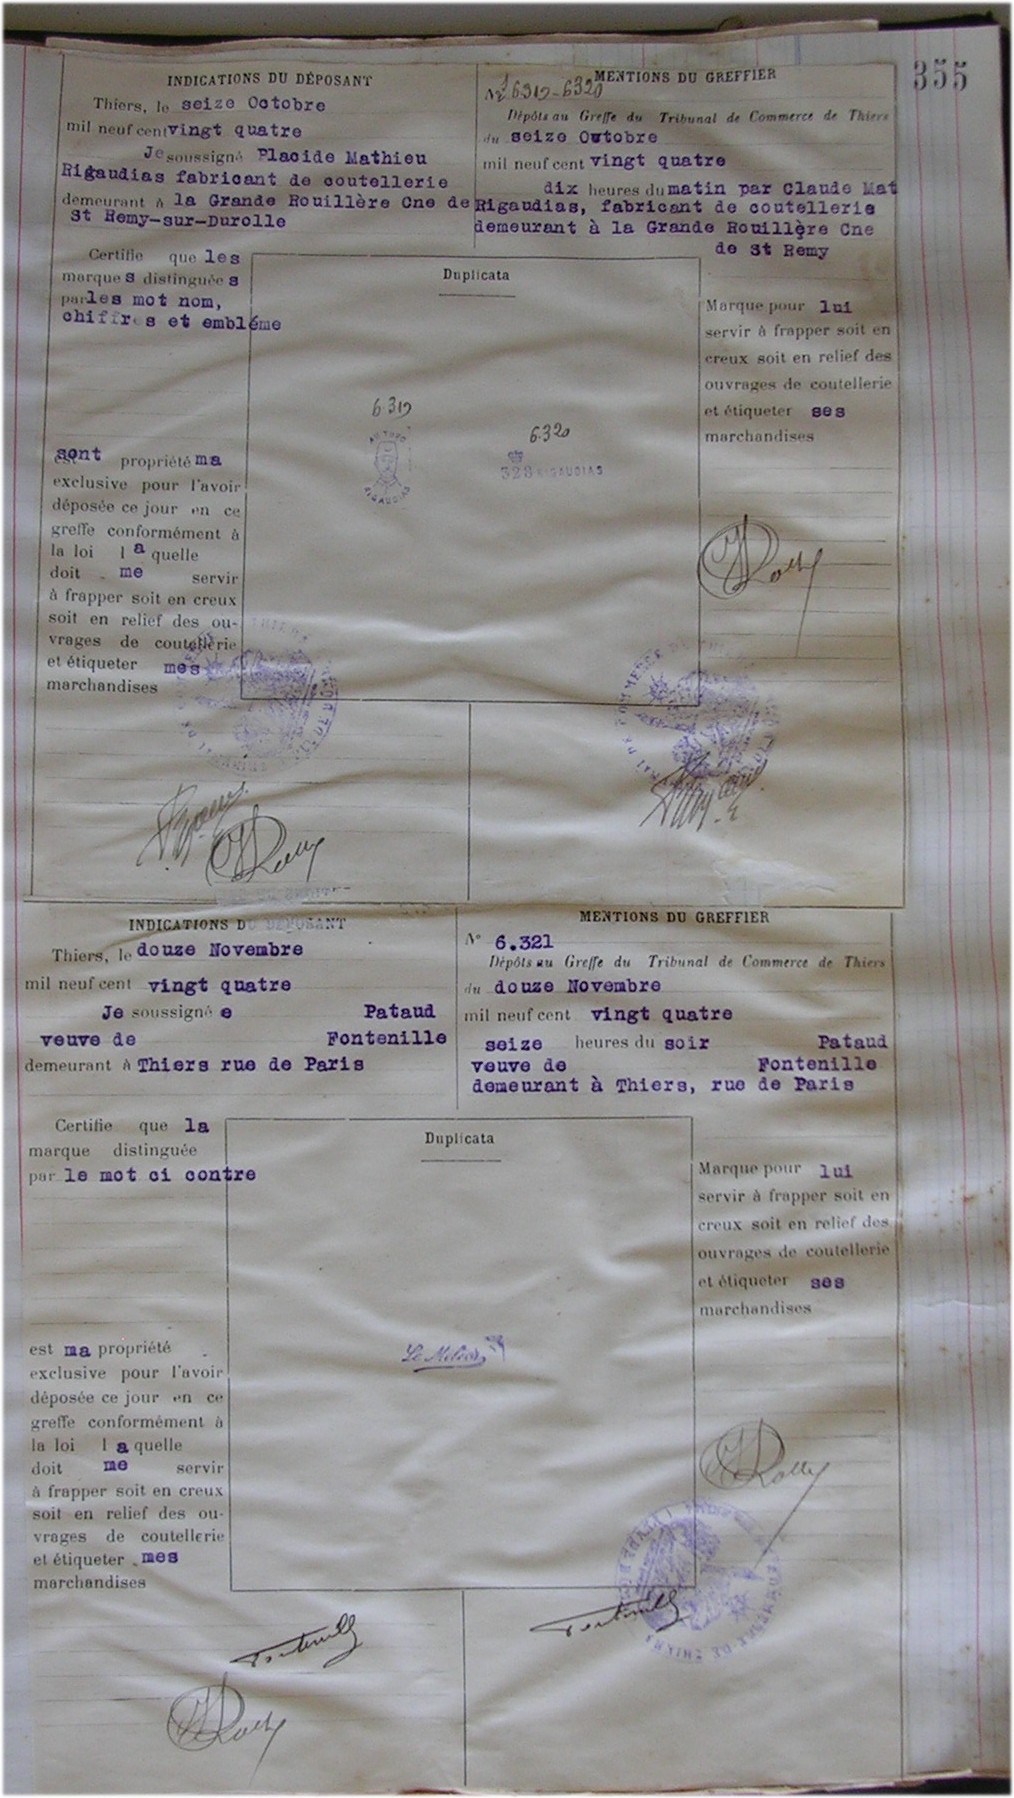 355
INDICATIONS DU DÉPOSANT
Thiers, le seize Octobre
mil neuf cent vingt quatre
Je soussigné Placide Mathieu
Rigaudias fabricant de coutellerie
demeurant à la Grande Rouillère Cne de
St Remy-sur-Durolle
MENTIONS DU GREFFIER
Nº 6319-6320
Dépôts au Greffe du Tribunal de Commerce de Thiers
du seize Octobre
mil neuf cent vingt quatre
dix heures du matin par Claude Mat
Rigaudias, fabricant de coutellerie
demeurant à la Grande Rouillère Cne
de St Remy
Certifie que les
marques distinguées
par les mot nom,
chiffres et emblême
sont propriété ma
exclusive pour l'avoir
déposée ce jour en ce
greffe conformément à
la loi laquelle
doit me servir
à frapper soit en creux
soit en relief des ou-
vrages de coutellerie
et étiqueter mes
marchandises
Duplicata
6.319
RIGAUDIAS
6.320
328 RIGAUDIAS
Marque pour lui
servir à frapper soit en
creux soit en relief des
ouvrages de coutellerie
et étiqueter ses
marchandises
INDICATIONS DU DÉPOSANT
Thiers, le douze Novembre
mil neuf cent vingt quatre
Je soussignée Pataud
veuve de Fontenille
demeurant à Thiers rue de Paris
MENTIONS DU GREFFIER
Nº 6.321
Dépôts au Greffe du Tribunal de Commerce de Thiers
du douze Novembre
mil neuf cent vingt quatre
seize heures du soir Pataud
veuve de Fontenille
demeurant à Thiers, rue de Paris
Certifie que la
marque distinguée
par le mot ci contre
est ma propriété
exclusive pour l'avoir
déposée ce jour en ce
greffe conformément à
la loi laquelle
doit me servir
à frapper soit en creux
soit en relief des ou-
vrages de coutellerie
et étiqueter mes
marchandises
Duplicata
Marque pour lui
servir à frapper soit en
creux soit en relief des
ouvrages de coutellerie
et étiqueter ses
marchandises